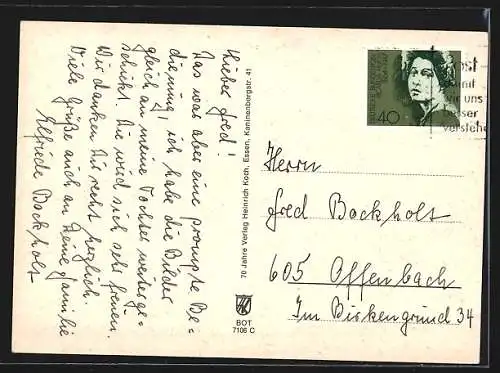 Lieber Fred!
Das was aber eine prompte Be-
dienung! ich habe die Bilder
gleich an meine Tochter weiterge-
schickt. Die wird sich sehr freuen.
Wir danken Dir recht herzlich.
Viele Grüße auch an Deine Familie
Elfriede Bockholt
70 Jahre Verlag Heinrich Koch, Essen, Kaninenbergstr. 41
BOT
7106 C
40
ost
damit
wir uns
besser
verstehe
Herrn
Fred Bockholt
605 Offenbach
Im Birkengrund 34